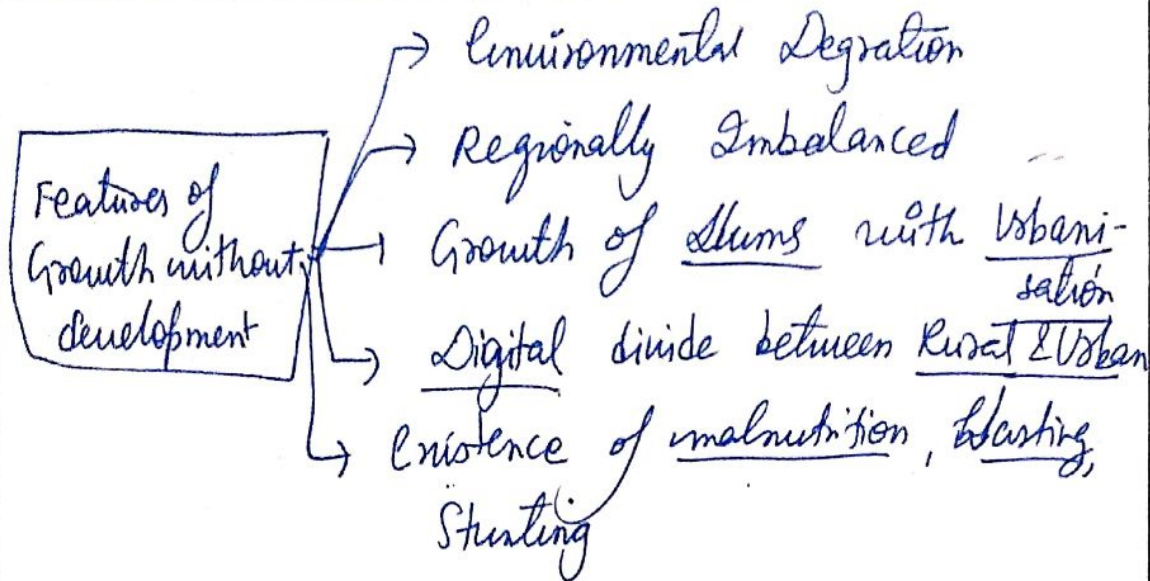 Features of
Growth without
development
Environmental Degration
Regionally Imbalanced
Growth of Slums with Urbani-
sation
Digital divide between Rural & Urban
Existence of malnutrition, Wasting,
Stunting